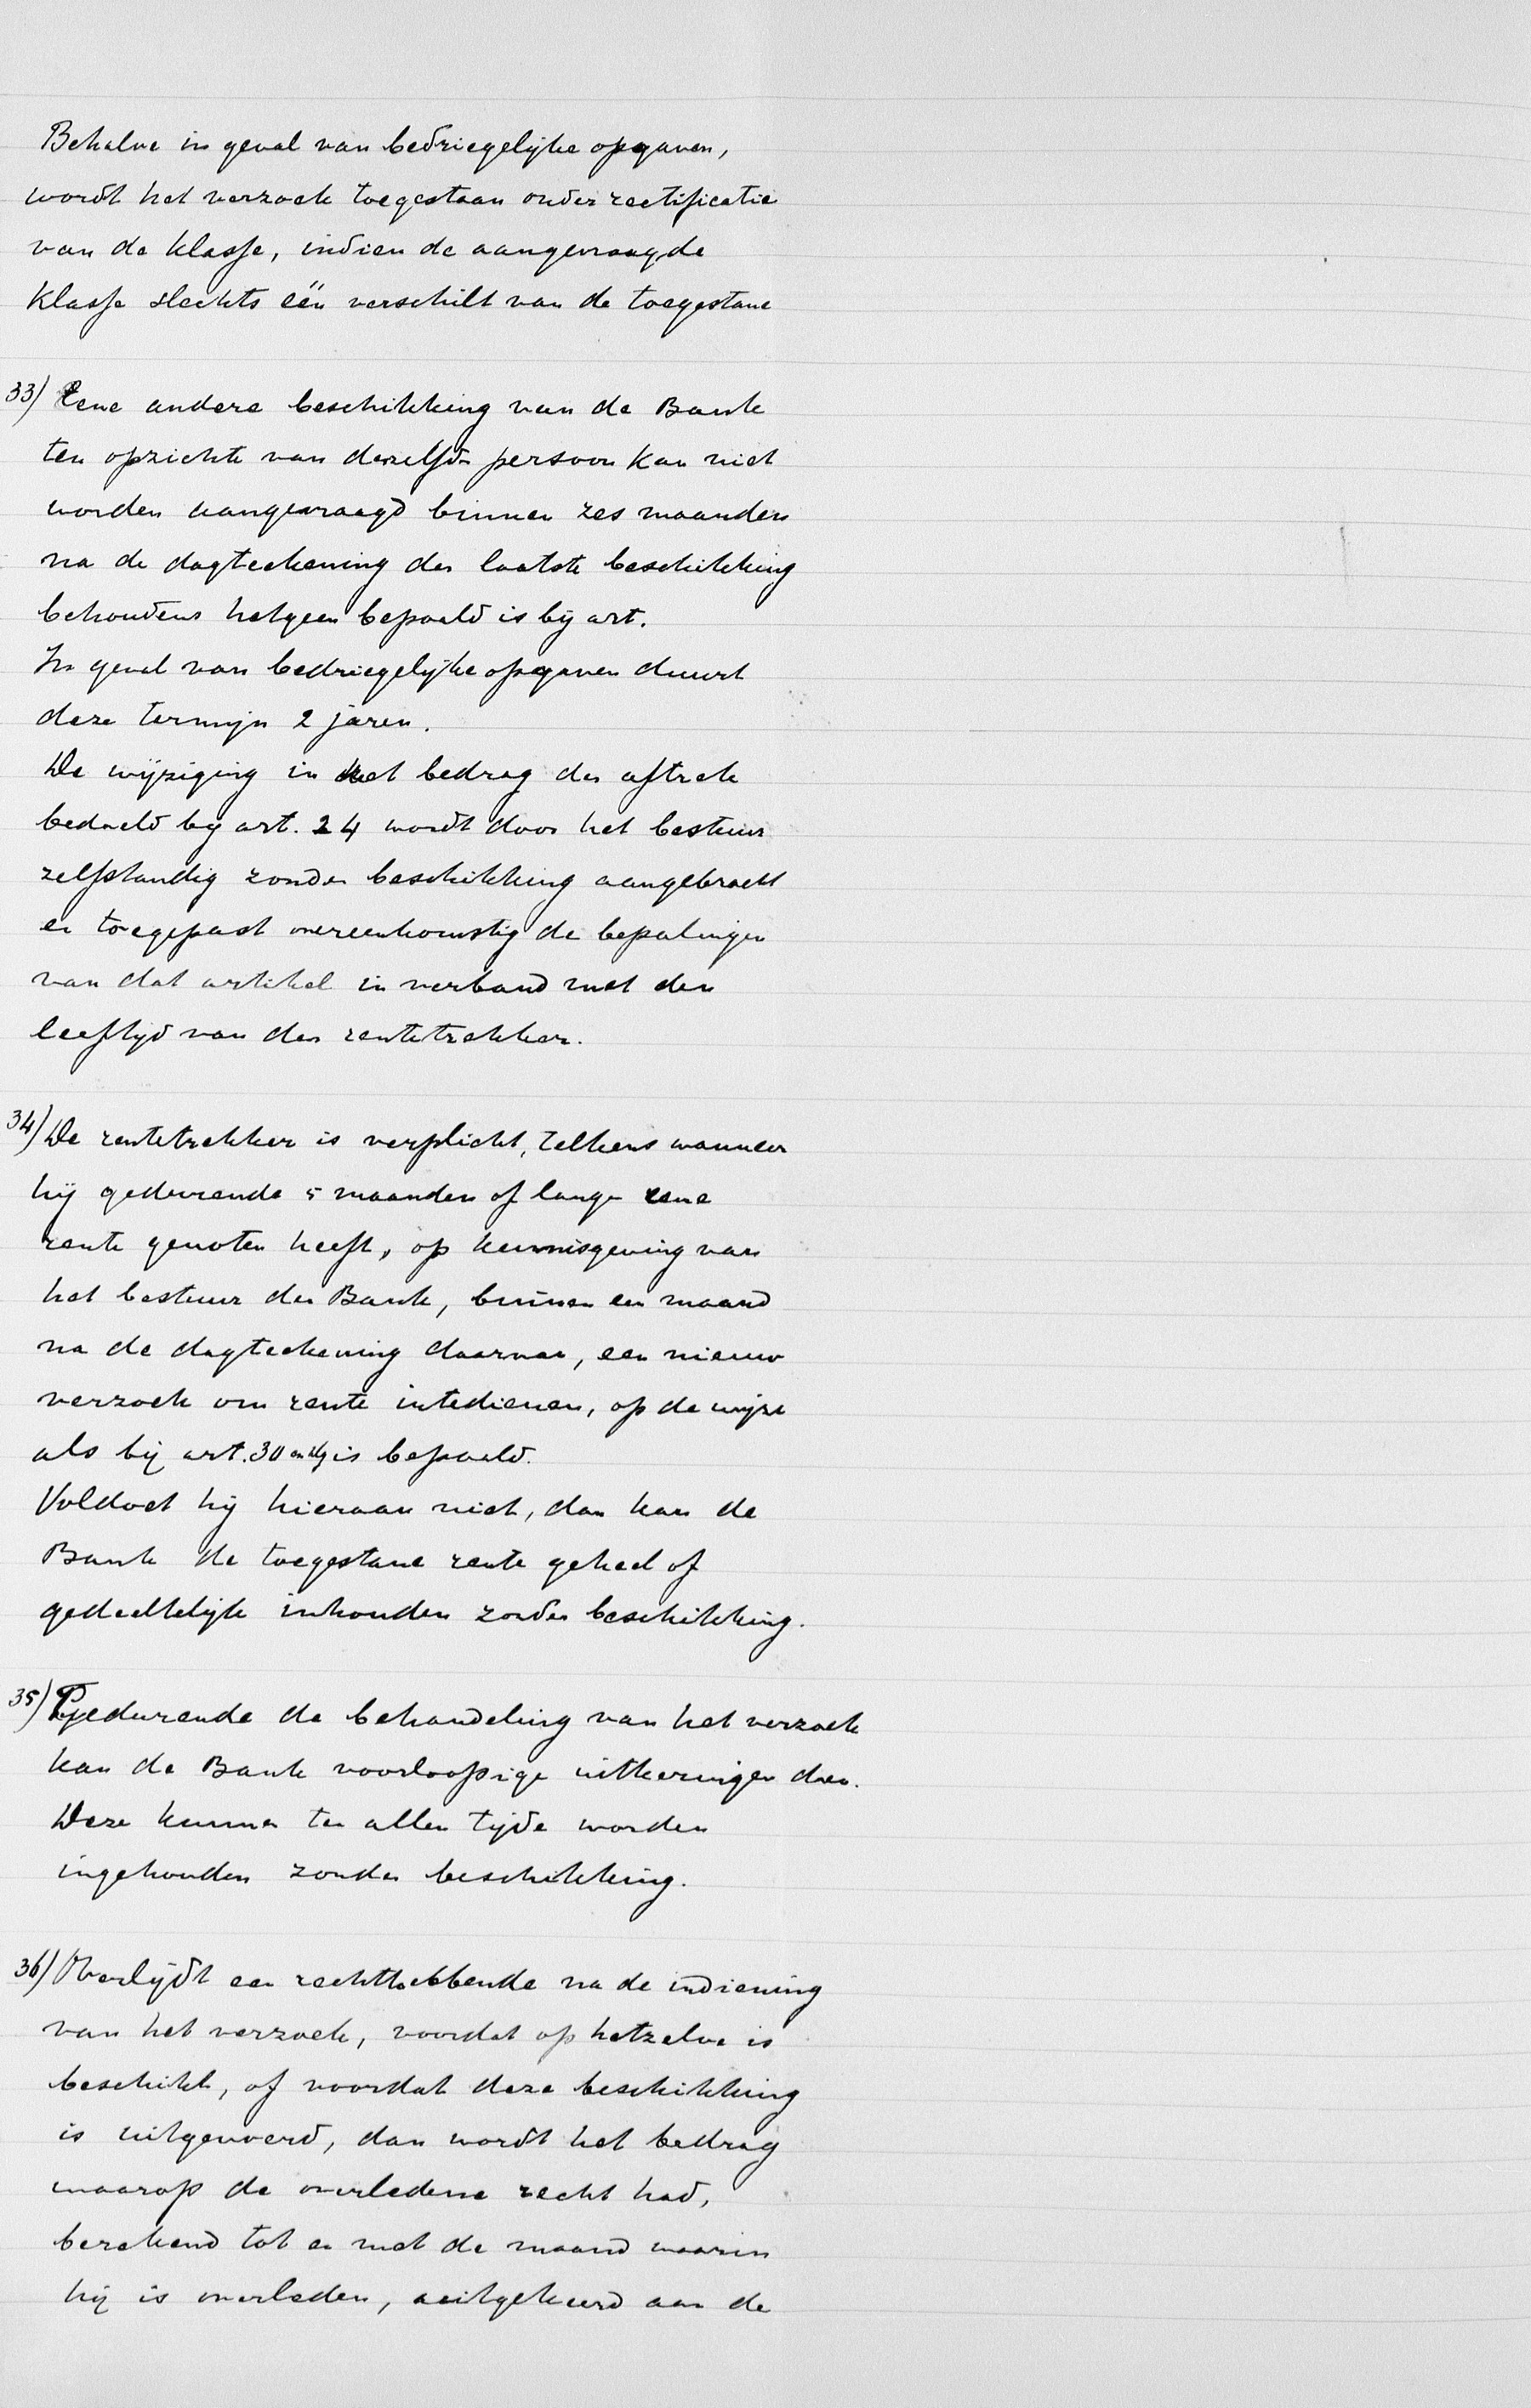 Behalve in geval van bedriegelijke opgaven,
wordt het verzoek toegestaan onder rectificatie
van de klasse, indien de aangevraagde
klasse slechts één verschilt van de toegestane
33) Eene andere beschikking van de Bank
ten opzichte van denzelfden persoon kan niet
worden aangevraagd binnen zes maanden
na de dagteekening der laatste beschikking
behoudens hetgeen bepaald is bij art.
In geval van bedriegelijke opgaven duurt
deze termijn 2 jaren.
De wijziging in het bedrag der aftrek
bedoeld bij art. 24 wordt door het bestuur
zelfstandig zonder beschikking aangebracht
en toegepast overeenkomstig de bepalingen
van dat artikel in verband met den
leeftijd van den rentetrekker.
34) De rentetrekker is verplicht, telkens wanneer
hij gedurende 5 maanden of langer eene
rente genoten heeft, op kennisgeving van
het bestuur der Bank, binnen een maand
na de dagteekening daarvan, een nieuw
verzoek om rente intedienen, op de wijze
als bij art. 30 is bepaald.
Voldoet hij hieraan niet, dan kan de
Bank de toegestane rente geheel of
gedeeltelijk inhouden zonder beschikking.
35) Gedurende de behandeling van het verzoek
kan de Bank voorloopige uitkeringen doen.
Deze kunnen ten allen tijde worden
ingehouden zonder beschikking.
36) Overlijdt een rechthebbende na de indiening
van het verzoek, voordat op hetzelve is
beschikt, of voordat deze beschikking
is uitgevoerd, dan wordt het bedrag
waarop de overledene recht had,
berekend tot en met de maand waarin
hij is overleden, uitgekeerd aan de